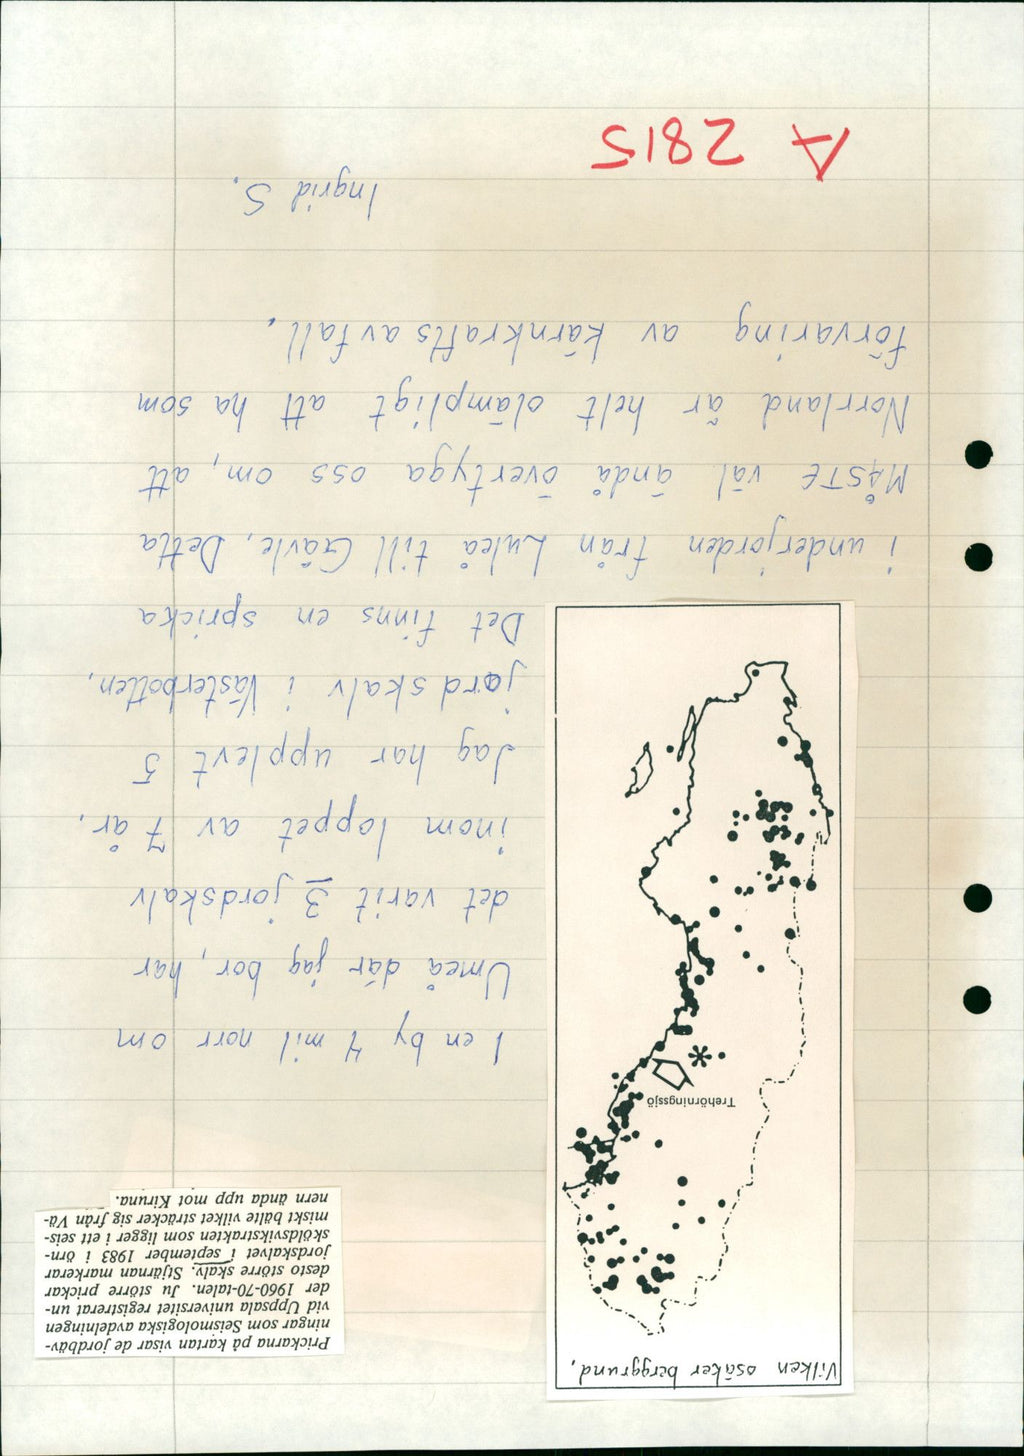 Vilken osäker berggrund,
Trehörningssjö
Prickarna på kartan visar de jordbäv-
ningar som Seismologiska avdelningen
vid Uppsala universitet registrerat un-
der 1960-70-talen. Ju större prickar
desto större skalv. Stjärnan markerar
jordskalvet i september 1983 i örn-
sköldsvikstrakten som ligger i ett seis-
miskt bälte vilket sträcker sig från Vä-
nern ända upp mot Kiruna.
I en by 4 mil norr om
Umeå där jag bor, har
det varit 3 jordskalv
inom loppet av 7 år.
Jag har upplevt 5
jordskalv i Västerbotten.
Det finns en spricka
i underjorden från Luleå till Gävle. Detta
MÅSTE väl ändå övertyga oss om, att
Norrland är helt olämpligt att ha som
förvaring av kärnkraftsavfall.
Ingrid S.
A 2815